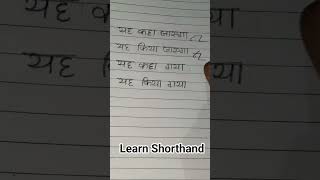 यह कहा जाएगा
यह किया जाएगा
यह कहा गया
यह किया गया
Learn Shorthand